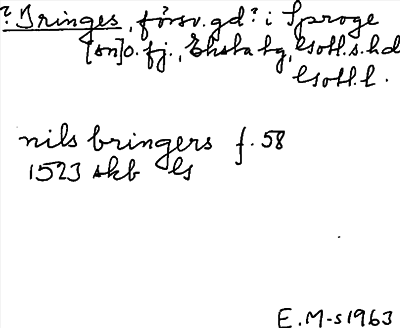 ? Bringes, försv. gd? i Sproge
[sn] o. fj., Eksta tg, Gotl. s. hd
Gotl. l.
nils bringers f. 58
1523 skb Gs
E. M-s 1963